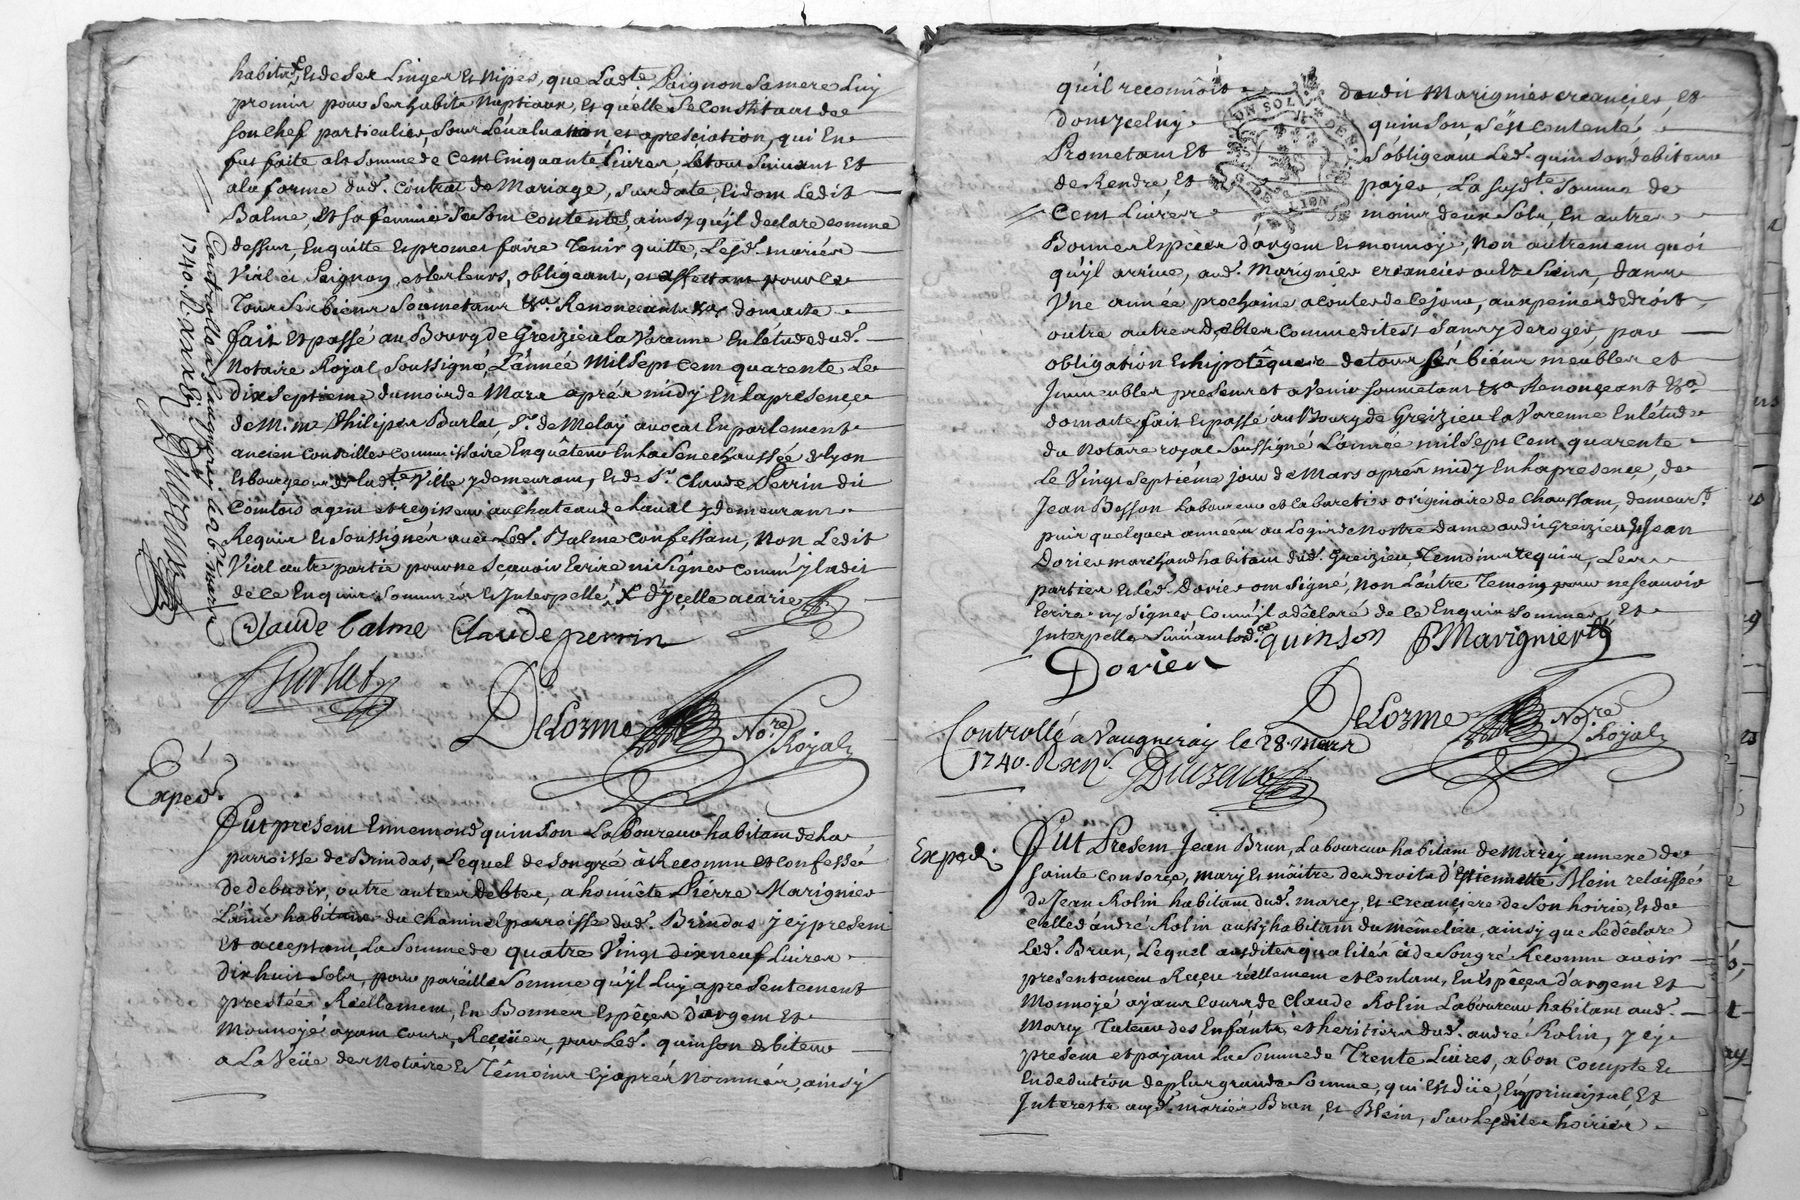 habits, et de ses Linges et nipes, que Lad.te Poignon Sa mere Luy
promis pour Ses habits Nuptiaux, et qu'elle Se Constituat de
Son Chef particulier, Sour L'evaluation, et apresciation, qui En
fut faite a la Somme de Cent Cinquante Livres, Le tout Suivant Et
a la forme dud. Contrat de Mariage, Sus daté, Et dont Ledit
Balme, et Sa femme Se Sont Contentés, ainsy qu'yl declare comme
dessus, En quitte Et promet faire Tenir quitte, Lesd. mariés
Vial et Poignon, et les leurs, obligeant, et affectant pour Ce
Tous Ses biens Soumetant &a. Renonceant &a. dont acte
fait Et passé au Bourg de Greizieu la Varenne En L'étude dud.
Notaire Royal Soussigné, L'année Mil Sept Cent quarente Le
Dix Septieme du mois de Mars aprés midy En la presence
de M. me Philipes Burlat, S.r de Meloy avocat En parlement
ancien Conseiller Commissaire Enquêteur En la Senechaussée de Lyon
et bourgeois de lad.te Ville y demeurant, Et de S.r Claude Perrin dit
Comtois agent et regisseur au Chateau de Laval y demeurant
Requis Et Soussignés avec Led. Balme Confessant, Non Ledit
Vial autre partie pour ne Sçavoir Ecrire ni Signer Comm' yl a dit
de Ce Enquis Sommés Et Interpellé, X d'yçelle acarie
Claude balme Claude perrin
Burlat
DeLorme No.re Royal
Controllé a Vaugneray le 26.e mars
1740. R.
Exped.
Fut present Ennemond quinson Laboureur habitant de La
parroisse de Brindas, Lequel de Son gré à Reconnu et Confessé
de debvoir, outre autres debtes, a honnête Pierre Marignier
L'ainé habitant du Chaminel parroisse dud. Brindas y cy present
Et acceptant, La Somme de quatre Vingt dix neuf Livres
dix huit Sols, pour pareille Somme qu'yl Luy a presentement
prestée Réellement, En Bonnes Espêces d'argent Et
Monnoyé ayant Cours Reçües, par Led. quinson debiteur
a La Veüe des Notaire Et Témoins Cy aprés Nommés, ainsy
qu'il reconnoit dud. Marignier creancier, Et
dont yceluy quinson, S'est Contenté
Prometant Et S'obligeant Led. quinson debiteur
de Rendre, Et payer, La Susd.te Somme de
Cent Livres moins deux Sols, En autre
Bonnes Espèces d'argent Et monnoyé, Non autrement quoi
qu'yl arrive, aud. Marignier creancier ou Es Siens, dans
Vne année prochaine a Conter de Ce jour, aux peines de droit
outre autres debtes Comme dit est Sans y deroger, par
obligation Et hipotêque de tous Ses biens meubles et
Immeubles presens et a Venir Soumetant &a Renonçeant &a
dont acte fait Et passé au Bourg de Greizieu la Varenne En L'étude
du Notaire royal Soussigné L'année mil Sept Cent quarente
Le Vingt Septiéme jour de Mars aprés midy En La presence, de
Jean Besson Laboureur et Cabaretier originaire de Chaussant, demeur.t
puis quelques années au Logis de Nostre dame audit Greizieu Et Jean
Dorier marchand habitant dud. Greizieu, Temoins requis, Les
parties et Led. Dorier ont Signé, Non L'autre Temoin pour ne Scavoir
Ecrire ny Signer Comm' yl a déclaré de Ce Enquis Sommer, Et
Interpeller Suivant L'ord.ce quinson P Marignier
Dorier
DeLorme No.re Royal
Controllé a Vaugneray le 28. mars
1740.
Exped.
Fut Present Jean Brun, Laboureur habitant de Marcy annexe de
Sainte Consorce, mary Et maître des droits d'Estiennette Blein relaissée
de Jean Rolin habitant dud. marcy, et Creanciere de Son hoirie, Et de
Celle d'andré Rolin aussy habitant du même lieu, ainsy que Le declare
Led. Brun, Lequel ausdites qualités à de Son gré Reconnu avoir
presentement Reçu réellement et Contant, En Espèces d'argent Et
Monnoyé ayant Cours de Claude Rolin Laboureur habitant aud.
Marcy Tuteur des Enfants, et heritiers dud. andré Rolin, y cy
present et payant La Somme de Trente Livres, a bon Compte Et
En deduction de plus grande Somme, qui Est düe, En principal Et
Interests aud. mariés Brun, Et Blein, Sur Lesdites hoiries